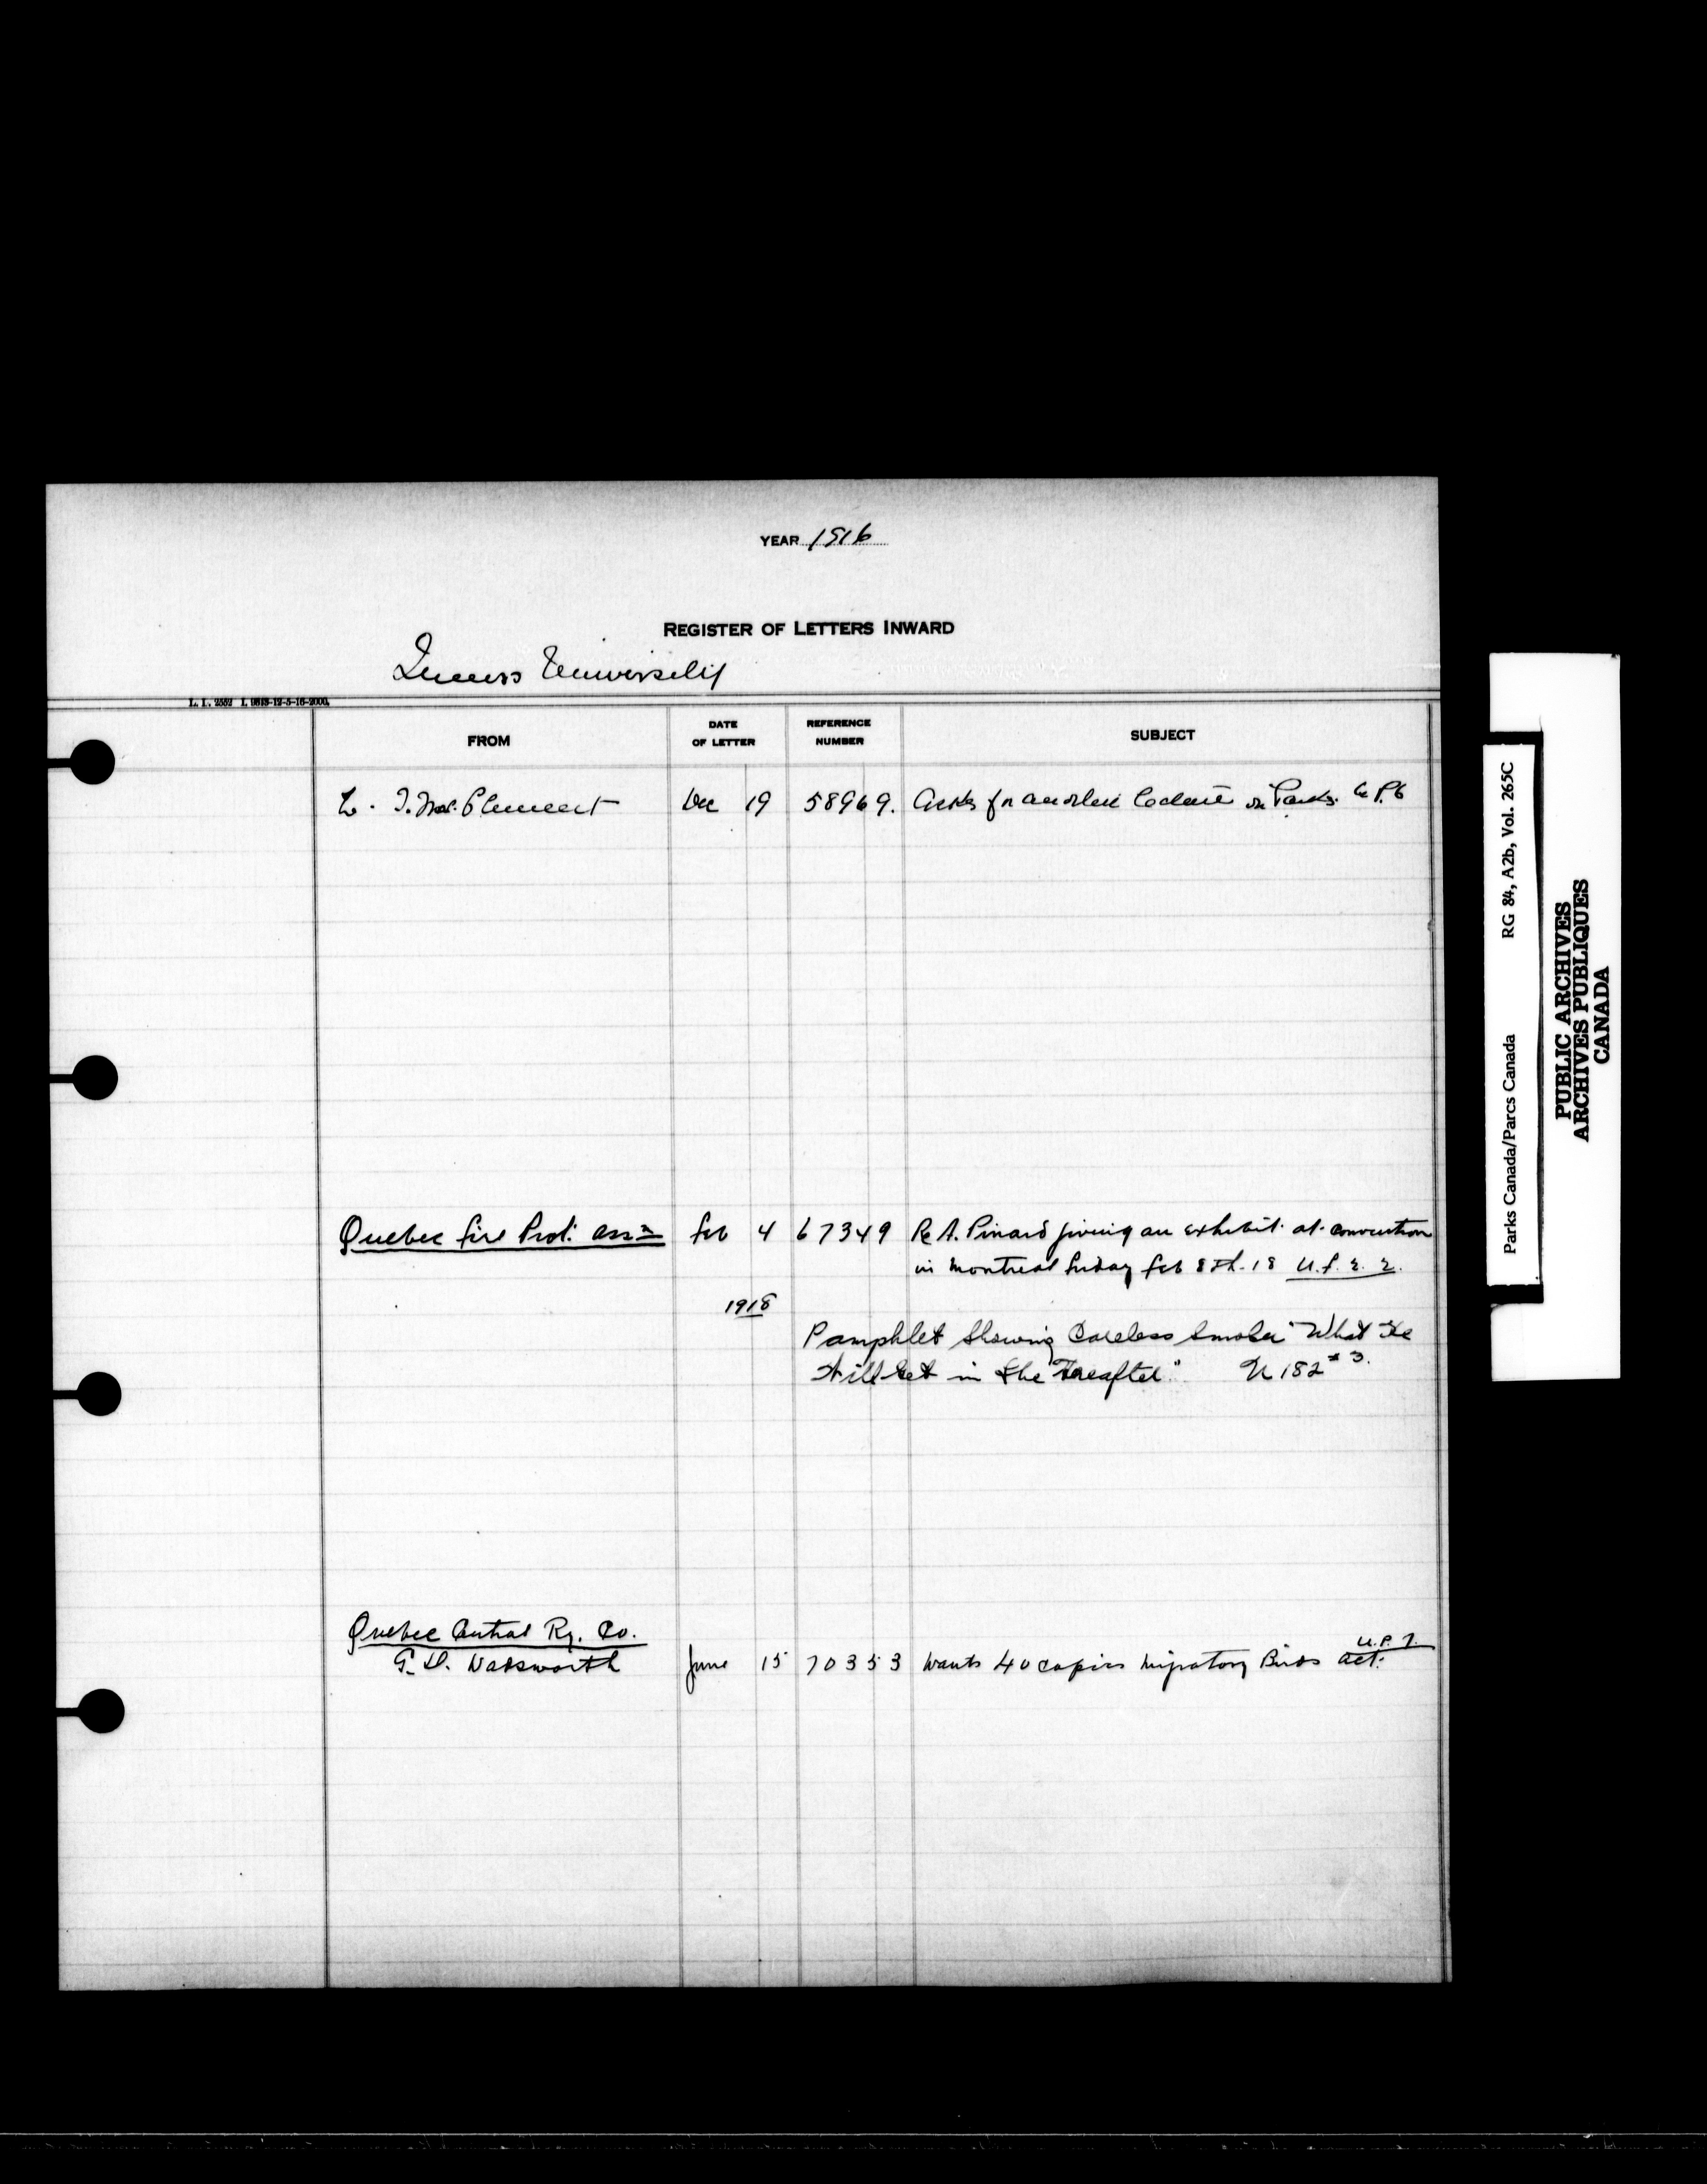 YEAR 1916
REGISTER OF LETTERS INWARD
Queens University
L. I. 2552 I. 9813-12-5-16-2000.
FROM DATE OF LETTER REFERENCE NUMBER SUBJECT
L. T. Mac. Clement Dec 19 58969. Asks for another Lecture on Parks.
Quebec fire Prot. assn feb 4 67349 Re A. Pinard giving an exhibit at convention
in Montreal friday feb 8th. 18 U.f.2.2.
1918
Pamphlet Showing Careless Smoker "What He
Will Get in the Hereafter" U 182 #3.
Quebec Central Ry. Co.
G. D. Wadsworth June 15 70353 Wants 40 copies Migratory Birds Act. U.P.7.
Parks Canada/Parcs Canada RG 84, A2b, Vol. 265C
PUBLIC ARCHIVES
ARCHIVES PUBLIQUES
CANADA